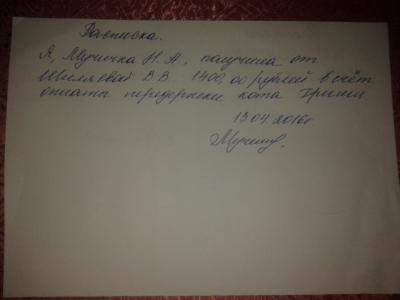 Расписка.
Я, Мучичка Н. А., получила от
Шиляевой В В 1400,00 рублей в счёт
оплаты передержки кота Гриши
13.04.2016г